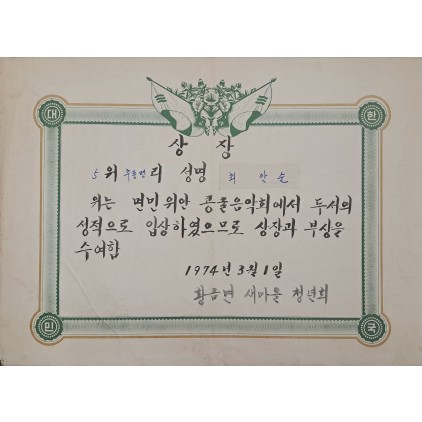 대 한
상 장
5위 리 성명 순
위는 면민 위안 콩쿨음악회에서 두서의
성적으로 입상하였으므로 상장과 부상을
수여함
1974년 3월 1일
황금면 새마을 청년회
민 국